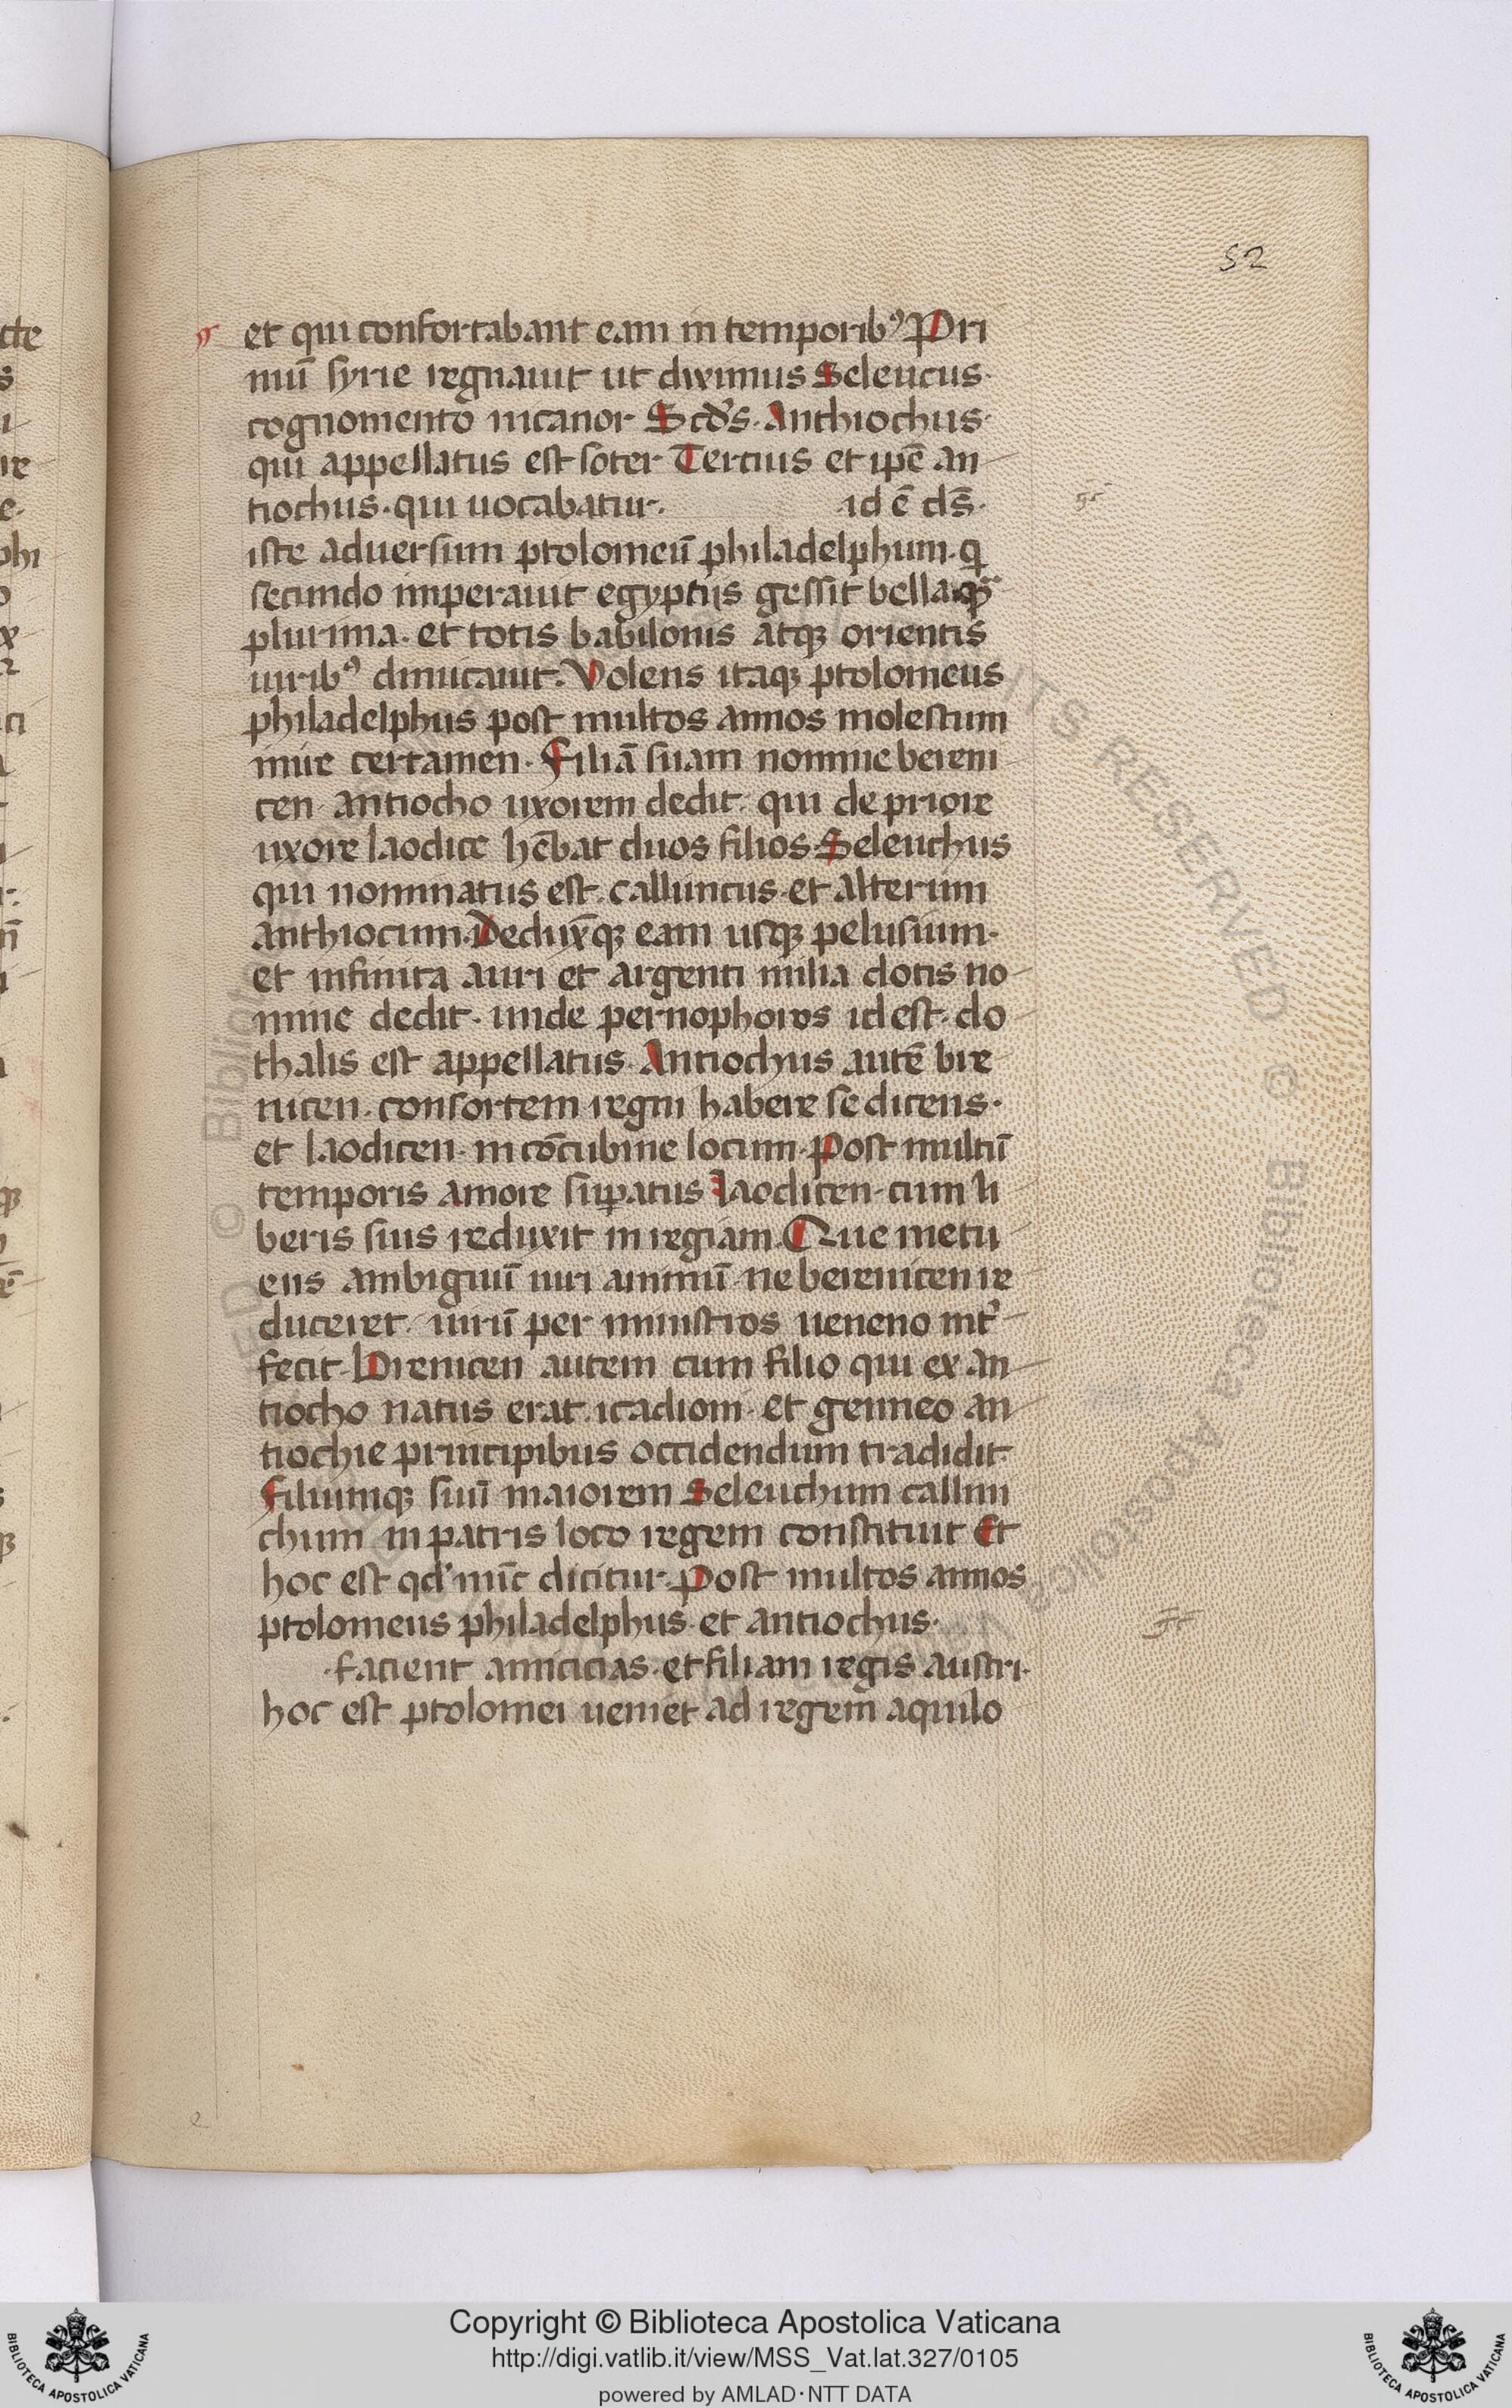 52
et qui confortabant eam in temporibꝰ Pri
mū syrie regnauit ut diximus Seleucus·
cognomento nicanor Scd̄s· Anthiochus·
qui appellatus est soter Tercius et ip̄e an
tiochus· qui uocabatur· id ē ds̄·
iste aduersum ptolomeū philadelphum· q̇
secundo imperauit egyptijs gessit bella
plurima· et totis babilonis atqꝫ orientis
uiribꝰ dimicauit· Volens itaqꝫ ptolomeus
philadelphus post multos annos molestum
inire certamen· Filiā suam nomine bereni
cen· antiocho uxorem dedit· qui de priore
uxore laodice hēbat duos filios Seleuchus
qui nominatus est· callinicus· et alterum
anthiocum· Deduxq̄ꝫ eam usqꝫ pelusium·
et infinita auri et argenti milia dotis no
mine dedit· unde pernophoros id est· do
thalis est appellatus· Antiochus autē bre
nicen· consortem regni habere se dicens·
et laodicen· in cōcubine locum· Post multū
temporis amore suꝑatus laodicen· cum li
beris suis reduxit in regiam Que metu
ens ambiguū uiri animū ne berenicen re
duceret· uirū per ministros ueneno int̄
fecit· Brenicen autem cum filio qui ex an
tiocho natus erat· icadioni· et genneo an
tiochie principibus occidendum tradidit·
filiumqꝫ suū maiorem Seleuchum callini
chum in patris loco regem constituit Et
hoc est qd̓ nūc dicitur· Post multos annos
ptolomeus philadelphus· et antiochus·
·facient amicicias· et filiam regis austri·
hoc est ptolomei ueniet ad regem aquilo
Copyright © Biblioteca Apostolica Vaticana
http://digi.vatlib.it/view/MSS_Vat.lat.327/0105
powered by AMLAD·NTT DATA